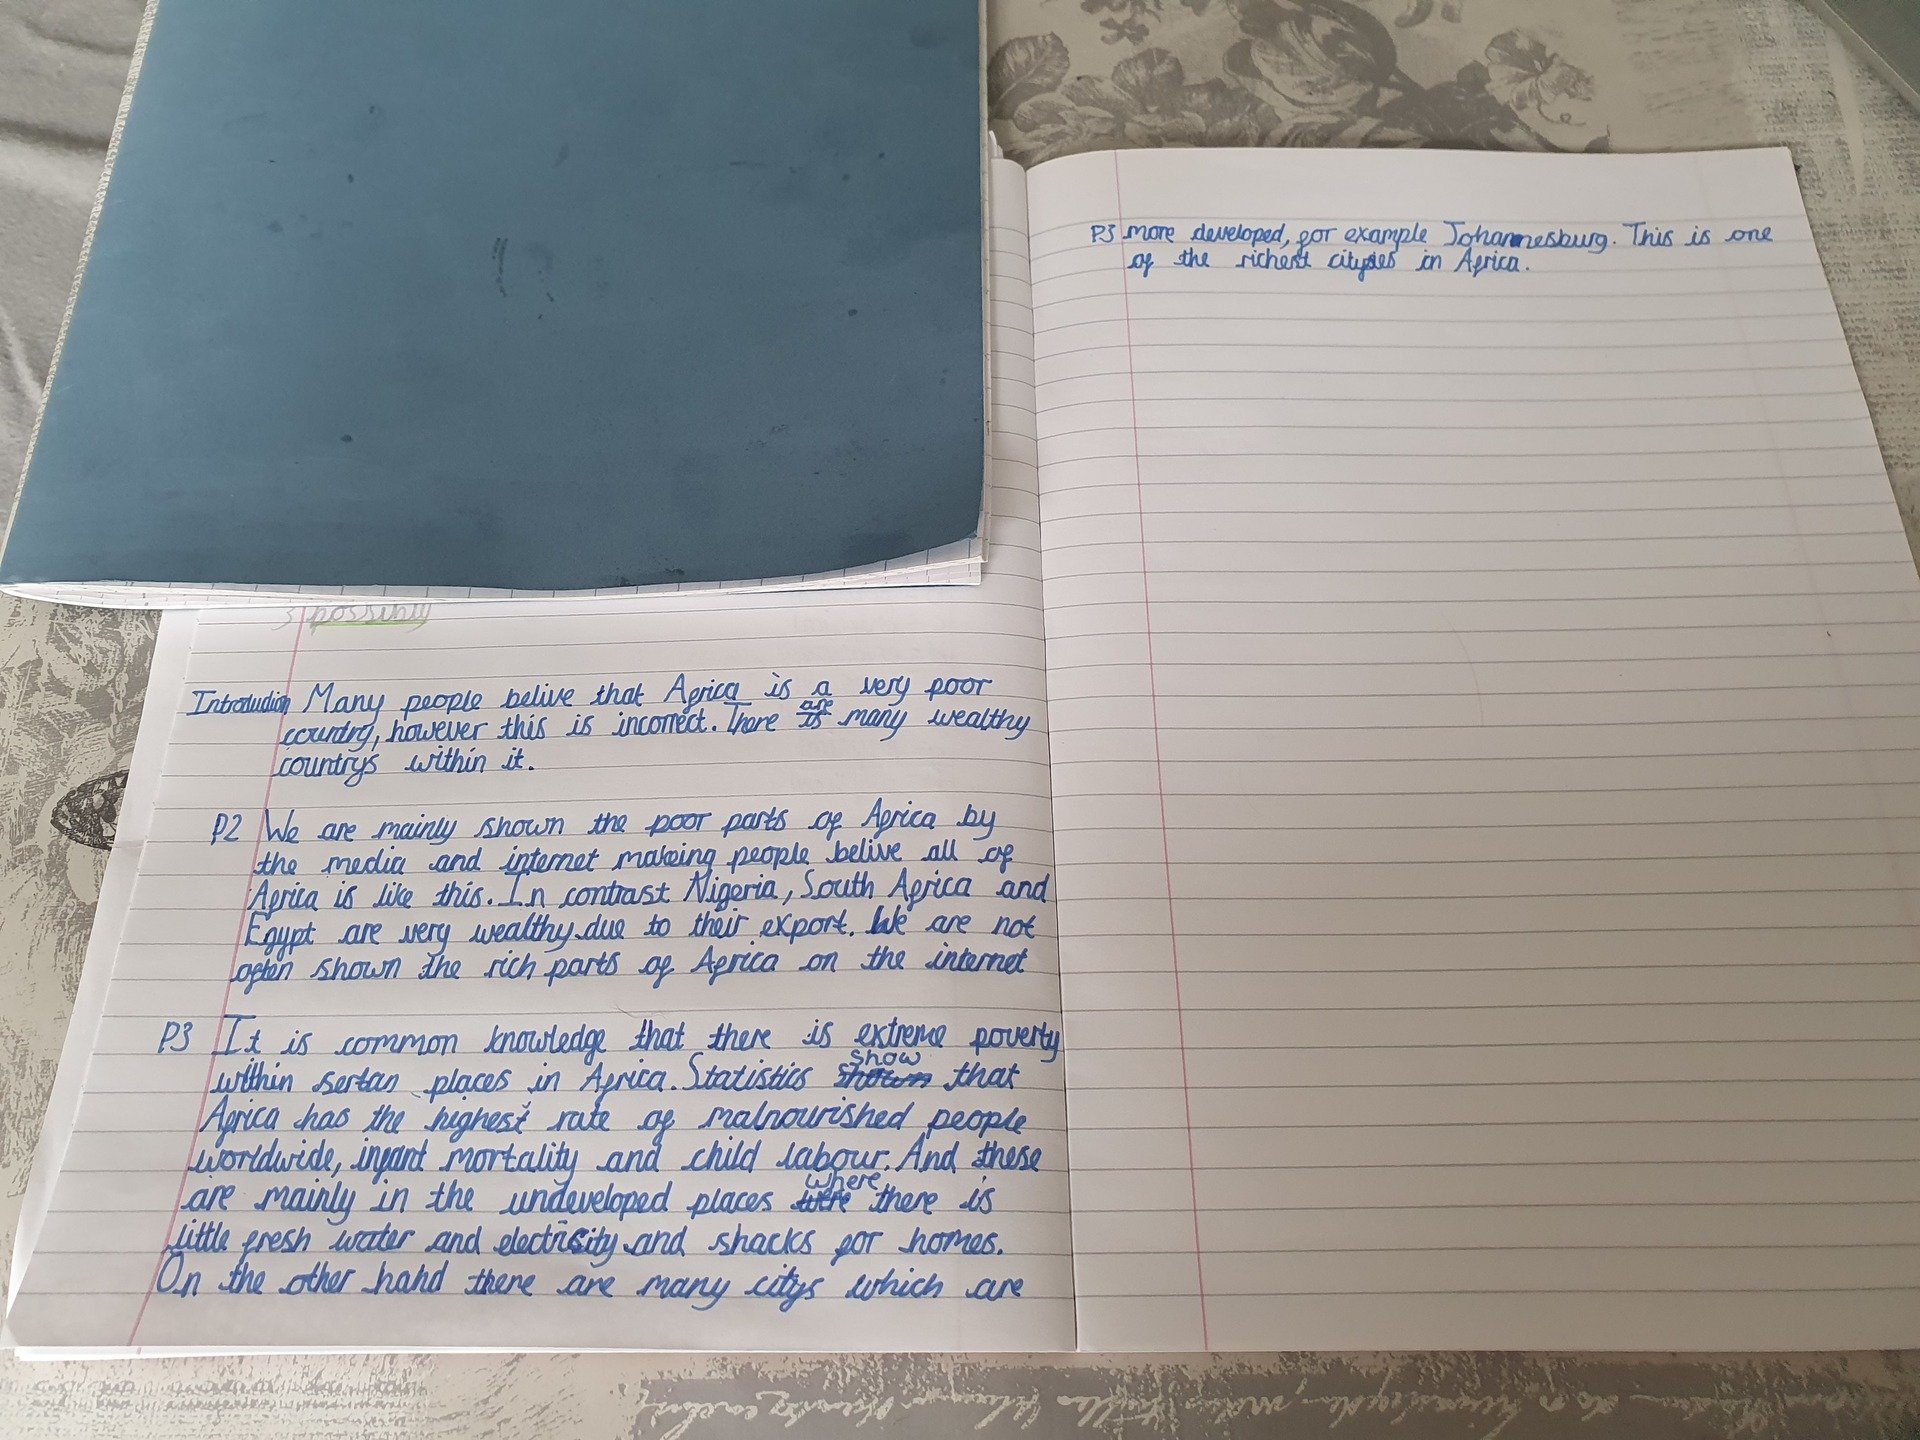 3 possibly
Introduction Many people belive that Africa is a very poor
country, however this is incorrect. There is are many wealthy
countrys within it.
P2 We are mainly shown the poor parts of Africa by
the media and internet making people belive all of
Africa is like this. In contrast Nigeria, South Africa and
Egypt are very wealthy due to their export. We are not
often shown the rich parts of Africa on the internet
P3 It is common knowledge that there is extreme poverty
within sertan places in Africa. Statistics shown show that
Africa has the highest rate of malnourished people
worldwide, infant mortality and child labour. And these
are mainly in the undeveloped places were where there is
little fresh water and electricity and shacks for homes.
On the other hand there are many citys which are
P3 more developed, for example Johannesburg. This is one
of the richest cityies in Africa.